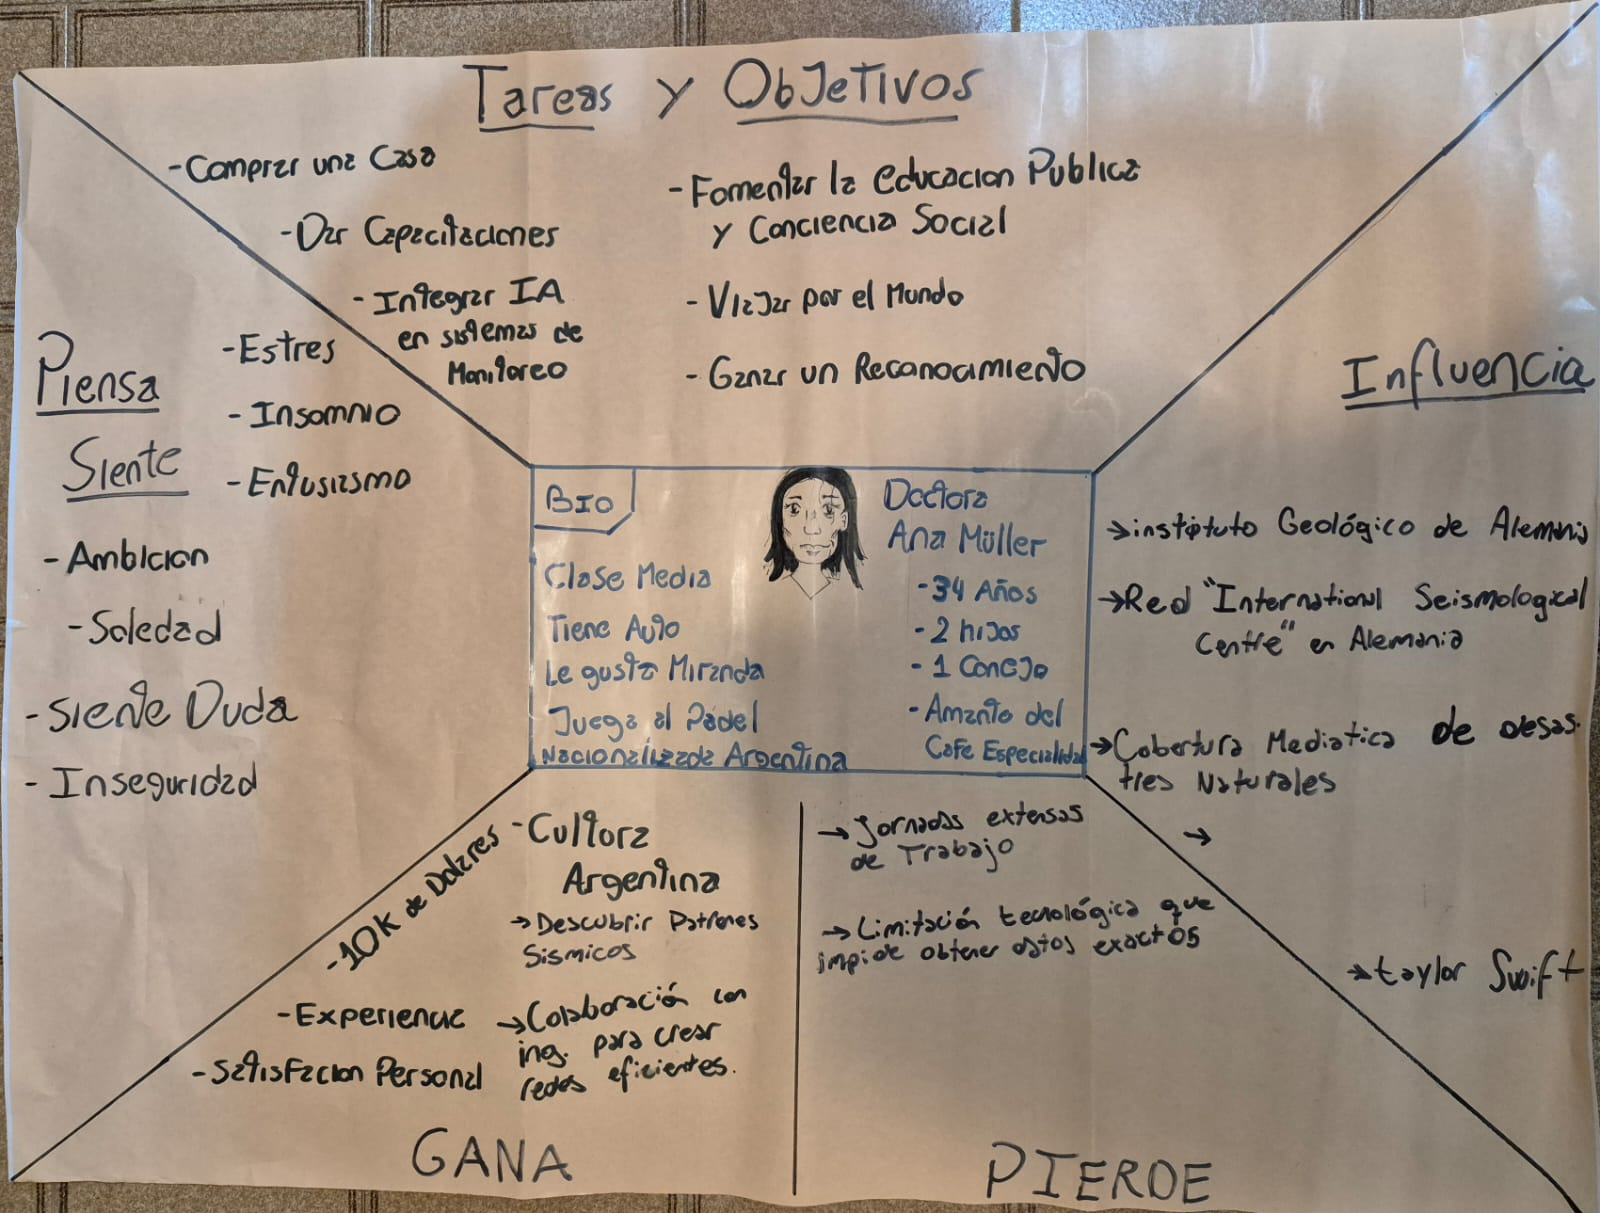 Tareas y Objetivos
- Comprar una Casa
- Dar Capacitaciones
- Integrar IA
en sistemas de
Monitoreo
- Fomentar la educacion Publica
y Conciencia Social
- Viajar por el Mundo
- Ganar un Reconocimiento
Piensa
Siente
- Estres
- Insomnio
- Entusiasmo
- Ambicion
- Soledad
- Siente Duda
- Inseguridad
BIO
Clase Media
Tiene Auto
Le gusta Miranda
Juega al Pádel
Nacionalizada Argentina
Doctora
Ana Müller
- 34 Años
- 2 hijos
- 1 Conejo
- Amante del
Cafe Especialidad
Influencia
→ instituto Geológico de Alemania
→ Red "International Seismological
Centre" en Alemania
→ Cobertura Mediatica de desas-
tres Naturales
→
→ taylor Swift
- 10K de Dolares
- Experiencia
- Satisfaccion Personal
- Cultora
Argentina
→ Descubrir Patrones
Sismicos
→ Colaboración con
ing. para crear
redes eficientes.
GANA
→ Jornadas extensas
de Trabajo
→ Limitación tecnológica que
impide obtener datos exactos
PIERDE